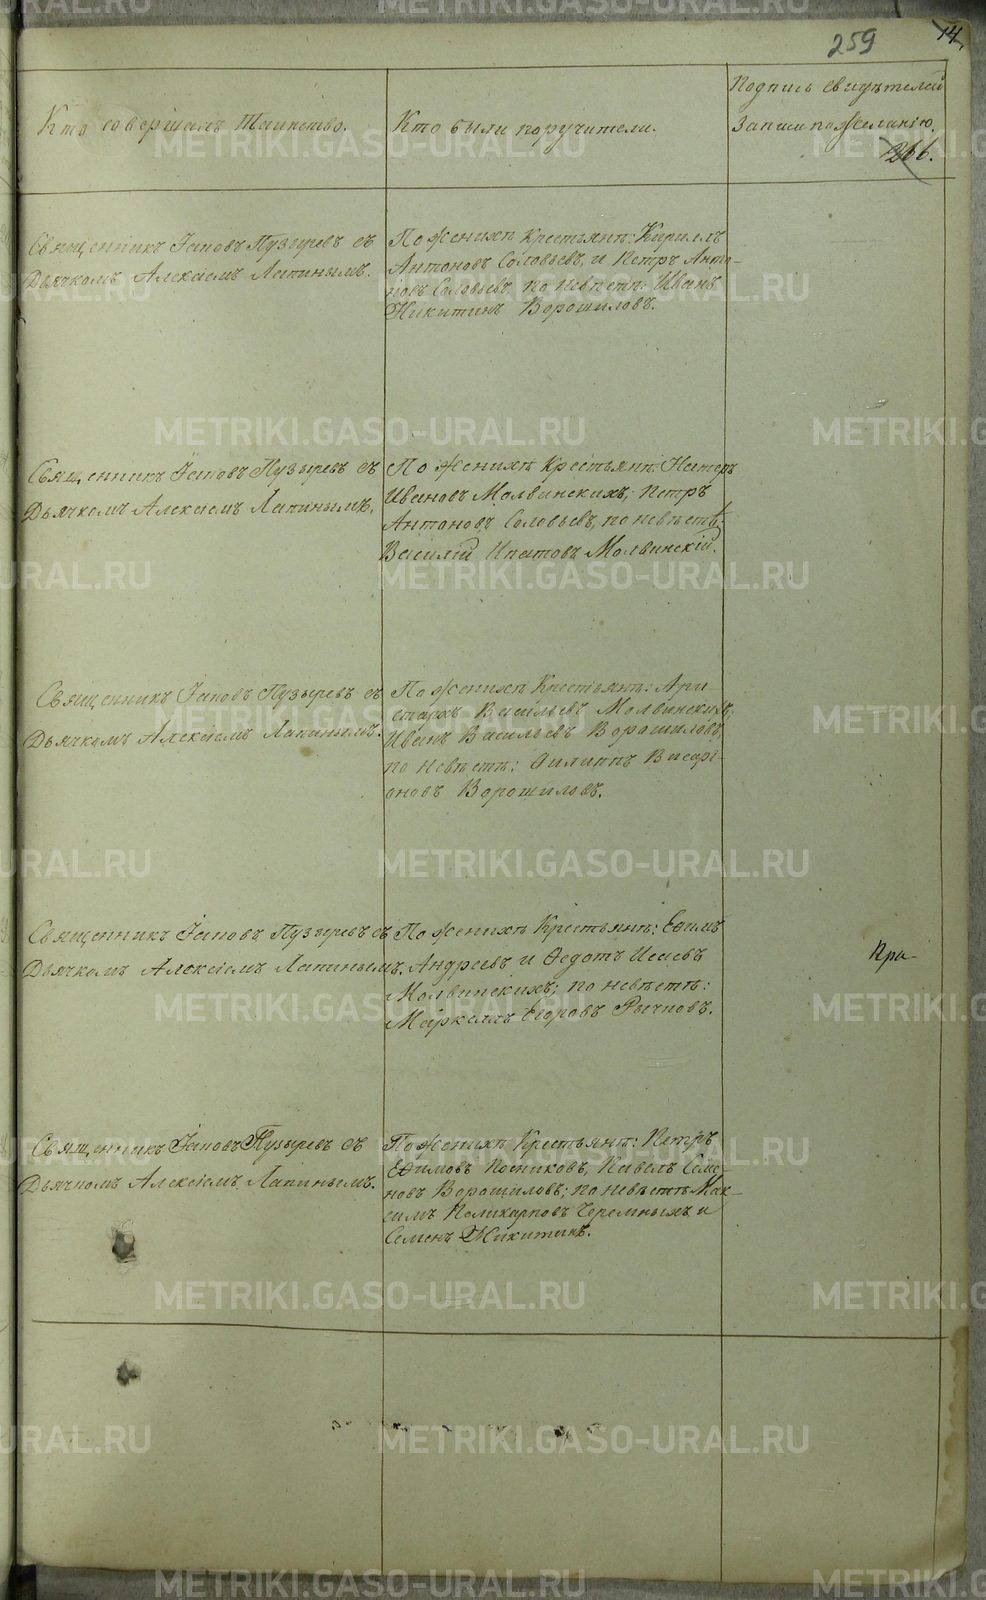 259
14
Кто совершалъ Таинство.
Кто были поручители.
Подпись свидѣтелей
записи по желанію.
266.
Священникъ Іаковъ Пузыревъ съ
Дьячкомъ Алексіемъ Лапинымъ.
По женихѣ Крестьянѣ: Кириллъ
Антоновъ Соловьевъ, и Петръ Анто-
новъ Соловьевъ, по невѣстѣ: Иванъ
Никитинъ Ворошиловъ.
Священникъ Іаковъ Пузыревъ съ
Дьячкомъ Алексіемъ Лапинымъ.
По женихѣ Крестьянѣ:
Ивановъ Молвинскихъ, Петръ
Антоновъ Соловьевъ, по невѣстѣ:
Василій Ипатовъ Молвинскій.
Священникъ Іаковъ Пузыревъ съ
Дьячкомъ Алексіемъ Лапинымъ.
По женихѣ Крестьянѣ: Ари
стархъ Васильевъ Молвинскихъ,
Иванъ Васильевъ Ворошиловъ,
по невѣстѣ: Филиппъ Висарі-
оновъ Ворошиловъ.
Священникъ Іаковъ Пузыревъ съ
Дьячкомъ Алексіемъ Лапинымъ.
По женихѣ Крестьянѣ: Ефимъ
Андреевъ и Ѳедотъ Исаевъ
Молвинскихъ; по невѣстѣ:
Маркеллъ Егоровъ Рычковъ.
При-
Священникъ Іаковъ Пузыревъ съ
Дьячкомъ Алексіемъ Лапинымъ.
По женихѣ Крестьянѣ: Петръ
Ефимовъ Посниковъ, Павелъ Семе-
новъ Ворошиловъ; по невѣстѣ Мак-
симъ Поликарповъ Черемныхъ и
Семенъ Никитинъ.
METRIKI.GASO-URAL.RU